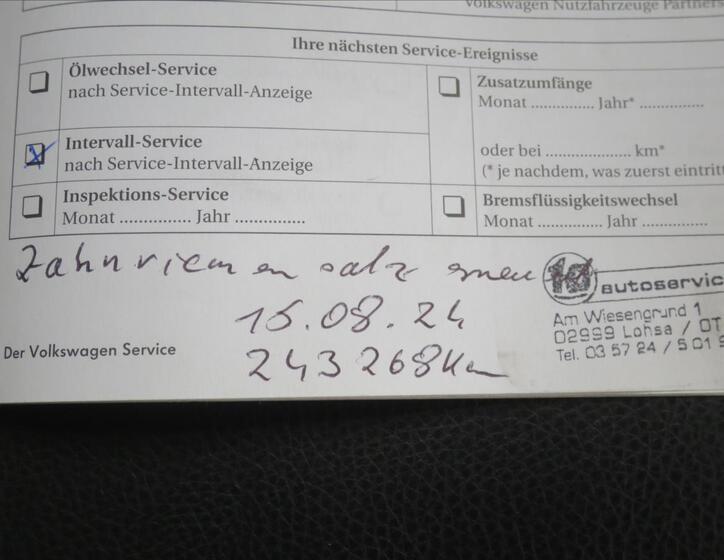 Volkswagen Nutzfahrzeuge Partners
Ihre nächsten Service-Ereignisse
Ölwechsel-Service
nach Service-Intervall-Anzeige
Intervall-Service
nach Service-Intervall-Anzeige
Inspektions-Service
Monat ............... Jahr ...............
Zusatzumfänge
Monat ............. Jahr* .............
oder bei .................... km*
(* je nachdem, was zuerst eintritt
Bremsflüssigkeitswechsel
Monat ............. Jahr .............
Zahnriemensatz erneuert
autoservic
15.08.24
Am Wiesengrund 1
02999 Lohsa / OT
Tel. 03 57 24 / 5 01 9
Der Volkswagen Service
243 268 Km